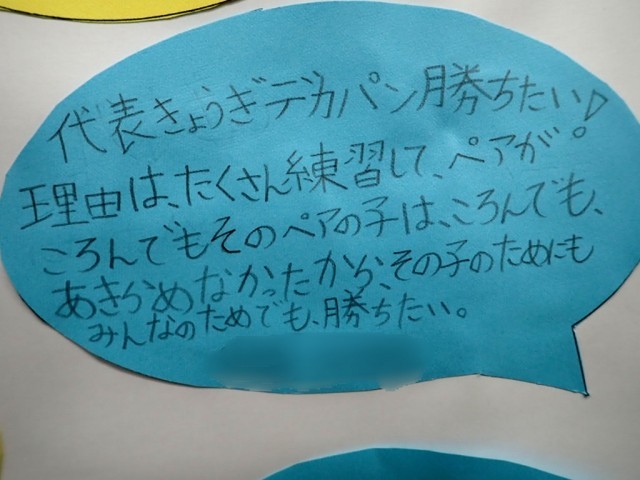 代表きょうぎデカパン勝ちたい♪。
理由は、たくさん練習して、ペアが
ころんでもそのペアの子は、ころんでも、
あきらめなかったから、その子のためにも
みんなのためでも、勝ちたい。